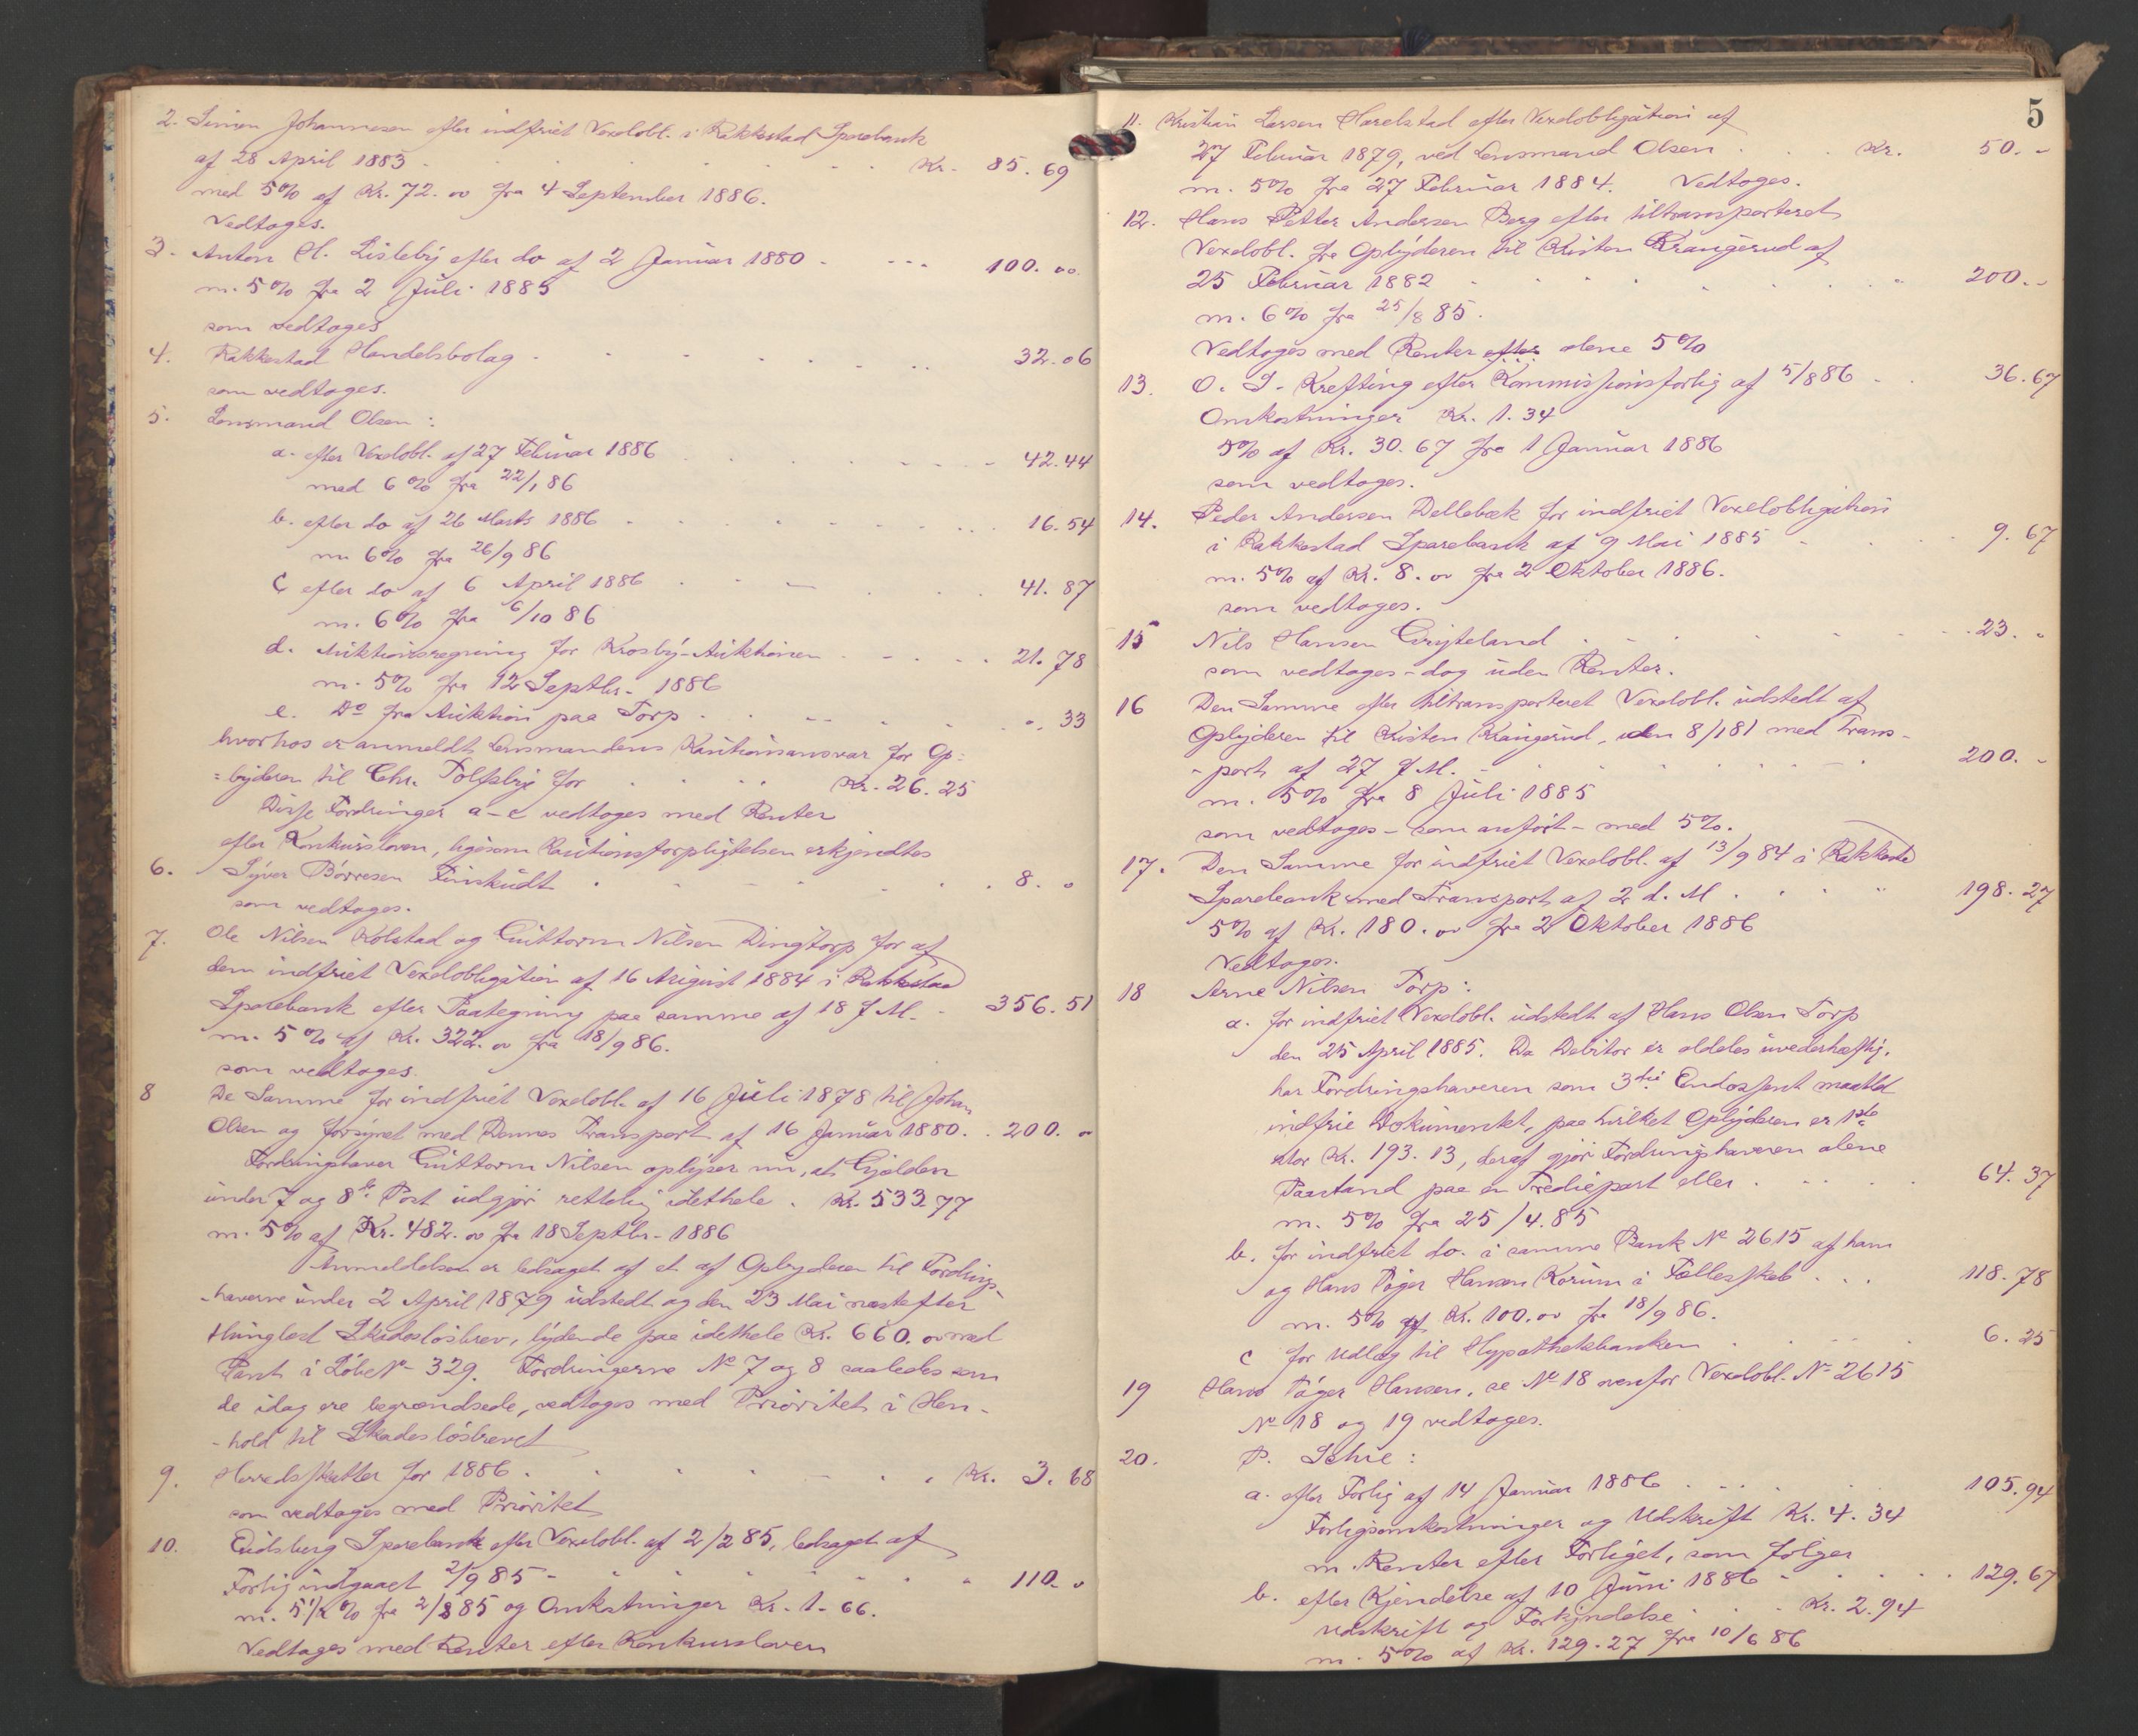 2. Simen Johannesen efter indfriet Vexelobl. i Rakkestad Sparebank
af 28 April 1883 Kr. 85.69
med 5% af Kr. 72.00 fra 4 September 1886.
Vedtages.
3. Anton H. Lisleby efter do af 2 Januar 1880 100.00
m. 5% fra 2 Juli 1885
som vedtages
4. Rakkestad Handelsbolag 32.06
som vedtages.
5. Lensmand Olsen:
a. efter Vexelobl. af 27 Februar 1886 42.44
med 6% fra 22/1 86
b. efter do af 26 Marts 1886 16.54
m 6% fra 26/9 86
c efter do af 6 April 1886 41.87
m. 6% fra 6/10 86
d. Auktionsregning for Krosby-Auktionen 21.78
m. 5% fra 12 Septbr. 1886
e. Do fra Auktion paa Torp .. 33
hvorhos er anmeldt Lensmandens Kautionsansvar for Op=
=byderen til Chr. for Kr. 26.25
Disse Fordringer a-e vedtages med Renter
efter Konkursloven, ligesom Kautionsforpligtelsen erkjendtes
6. Syver Börresen 8. "
som vedtages.
7. Ole Nilsen Kolstad og Guttorm Nilsen Dingtorp for af
dem indfriet Vexelobligation af 16 August 1884 i Rakkestad
Sparebank efter Paategning paa samme af 18 f. M. 356.51
m. 5% af Kr. 322.00 fra 18/9 86.
som vedtages.
8 De Samme for indfriet Vexelobl. af 16 Juli 1878 til Johan
Olsen og forsynet med Dennes Transport af 16 Januar 1880. 200.00
Fordringshaver Guttorm Nilsen oplyser nu, at Gjælden
under 7 og 8de Post udgjör rettelig idethele Kr. 533.77
m. 5% af Kr. 482.00 fra 18 Septbr. 1886
Anmeldelsen er ledsaget af et af Opbyderen til Fordrings-
-haverne under 2 April 1879 udstedt og den 23 Mai næstefter
thinglæst Skadeslösbrev, lydende paa idethele Kr. 660.00 med
Pant i Löbe No 329. Fordringerne No 7 og 8 saaledes som
de idag ere begrændsede, vedtages med Prioritet i Hen-
-hold til Skadeslösbrevet
9. Herredsskatter for 1886 Kr. 3.68
som vedtages med Prioritet
10. Eidsberg Sparebank efter Vexelobl. af 2/2 85, ledsaget af
Forlig indgaaet 2/9 85 110.0
m. 5½% fra 2/8 85 og Omkostninger Kr. 1.66.
Vedtages med Renter efter Konkursloven
5
11. Kristian Larsen Harelstad efter Vexelobligation af
27 Februar 1879, ved Lensmand Olsen Kr. 50.-
m. 5% fra 27 Februar 1884. Vedtages.
12. Hans Petter Andersen Berg efter tiltransporteret
Vexelobl. fra Opbyderen til Kristen Krangerud af
25 Februar 1882 200.-
m. 6% fra 25/8 85.
Vedtages med Renter efter alene 5%
13. O. S. Krefting efter Kommissionsforlig af 5/8 86 36.67
Omkostninger Kr. 1.34
5% af Kr. 30.67 fra 1 Januar 1886
som vedtages.
14. Peder Andersen Dellebæk for indfriet Vexelobligation
i Rakkestad Sparebank af 9 Mai 1885 9.67
m. 5% af Kr. 8.00 fra 2 Oktober 1886.
som vedtages.
15 Nils Hansen Gryteland 23."
som vedtages - dog uden Renter.
16 Den Samme efter tiltransporteret Vexelobl. udstedt af
Opbyderen til Kristen Krangerud, den 8/1 81 med Trans-
-port af 27 f. M. 200.-
m. 5% fra 8 Juli 1885
som vedtages - som anfört - med 5%.
17. Den Samme for indfriet Vexelobl. af 13/9 84 i Rakkestad
Sparebank med Transport af 2 d. M. 198.27
5% af Kr. 180.00 fra 2 Oktober 1886
Vedtages.
18 Arne Nilsen Torp:
a. for indfriet Vexelobl. udstedt af Hans Olsen Torp
den 25 April 1885. Da Debitor er aldeles uvederhæftig,
har Fordringshaveren som 3die Endossent maattet
indfrie Dokumentet, paa hvilket Opbyderen er 1ste
stor Kr. 193.13, deraf gjör Fordringshaveren alene
Paastand paa en Trediepart eller 64.37
m. 5% fra 25/4.85
b. for indfriet do. i samme Bank No 2615 af ham
og Hans Töger Hansen Korum i Fællesskab 118.78
m. 5% af Kr. 100.00 fra 18/9 86.
c for Udlæg til Hypothekbanken 6.25
19 Hans Töger Hansen, se No 18 ovenfor Vexelobl. No 2615
No 18 og 19 vedtages.
20. P. Schie:
a. efter Forlig af 14 Januar 1886 105.94
Forligsomkostninger og Udskrift Kr. 4.34
m. Renter efter Forliget, som fölger
b. efter Kjendelse af 10 Juni 1886 129.67
Udskrift og Forkyndelse Kr. 2.94
m. 5% af Kr. 129.27 fra 10/6 86